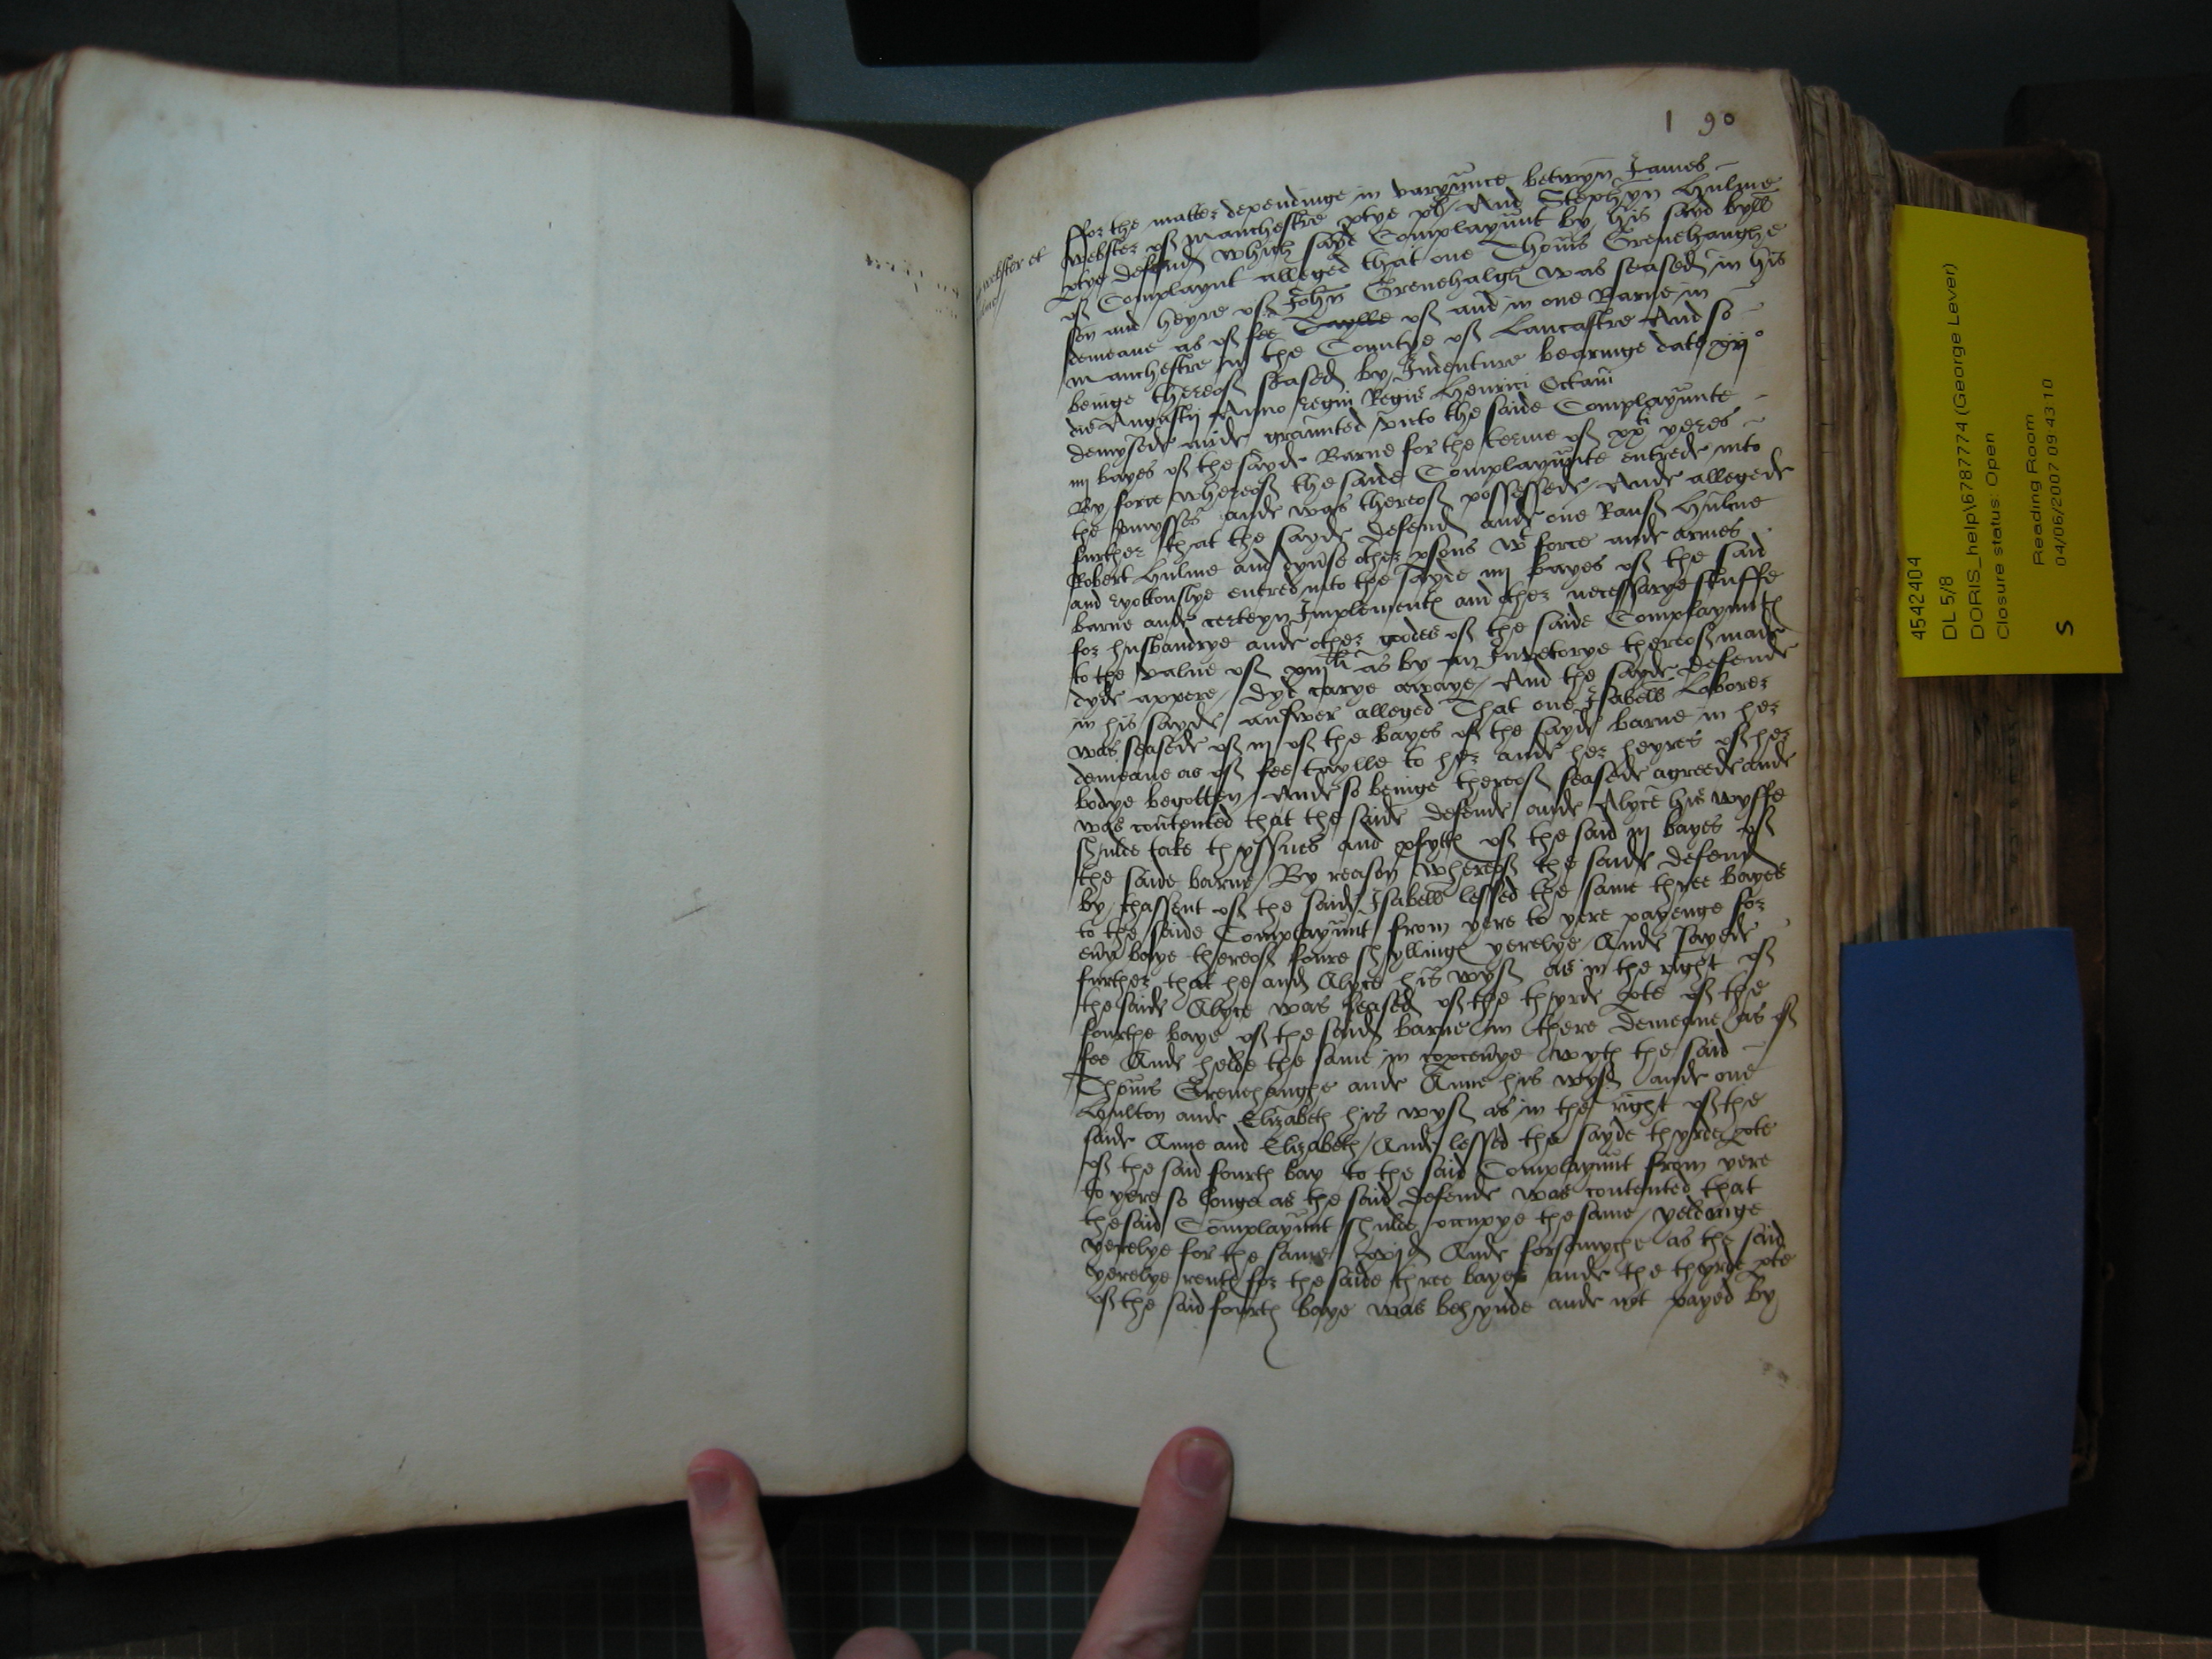 1 90
webster et
ffor the matter dependinge in varyunce betwyn James
Webster of Manchestre ptye pl And Stephyn Hulme
ptye defend Which sayd Complayunt by his sayd byll
of Complaynt alleged that one Thoms Grenehaughe
son and heyre of John Grenehalgh was seased in his
demeane as of fee Taylle of and in one Barne in
Manchestre in the Countye of Lancastre And so
beinge thereof seased by Indenture bearinge date xij°
die Augustij Anno regni Regis Henrici Octaui
demysede ande graunted vnto the saide Complayunte
iiij bayes of the sayde Barne for the terme of xxti yeres
By force whereof the saide Complayunte entrede into
the pmysses ande was thereof possessede Ande allegede
further that the sayde defend ande one Rauf Hulme
Robert Hulme and dyuse other psons wt force ande armes
and ryottouslye entred into the sayde iiij bayes of the said
barne ande certeyn Implements and other necessarye stuffe
for husbandrye ande other goodes of the saide Complayunts
to the value of xiiij li as by an Invetorye thereof made
dyde appere dyd carye awaye And the sayde defende
in his sayde answer alleged That one Isabell Laborer
was seasede of iij of the bayes of the sayde barne in her
demeane as of fee taylle to her ande her heyres of her
bodye begotten Ande so beinge thereof seasede agreede ande
was contented that the saide defende ande Alyce his wyffe
shulde take thyssues and pfytts of the said iij bayes of
the saide barne By reason whereof the saide defend
by thassent of the said Isabell lessed the same three bayes
to the saide Complayunt from yere to yere payenge for
euy baye thereof foure shyllings yerelye Ande sayede
further that he and Alyce his wyf as in the right of
the saide Alyce was seased of the thyrde pte of the
fourthe baye of the said barne in there demeane as of
fee Ande helde the same in copcenye wyth the said
Thoms Grenehaughe ande Anne his wyf ande one
Hulton ande Elizabeth his wyf as in the right of the
saide Anne and Elizabeth Ande lessed the sayde thyrde pte
of the said fourth bay to the said Complayunt from yere
to yere so longe as the said defende was contented that
the said Complayunt shulde occupye the same yeldinge
yerelye for the same xvj d Ande forsomyche as the said
yerelye rents for the saide three bayes ande the thyrde pte
of the said fourth baye was behynde ande not payed by
4542404
DL 5/8
DORIS_help\6787774 (George Lever)
Closure status: Open
Reading Room
S 04/06/2007 09:43:10